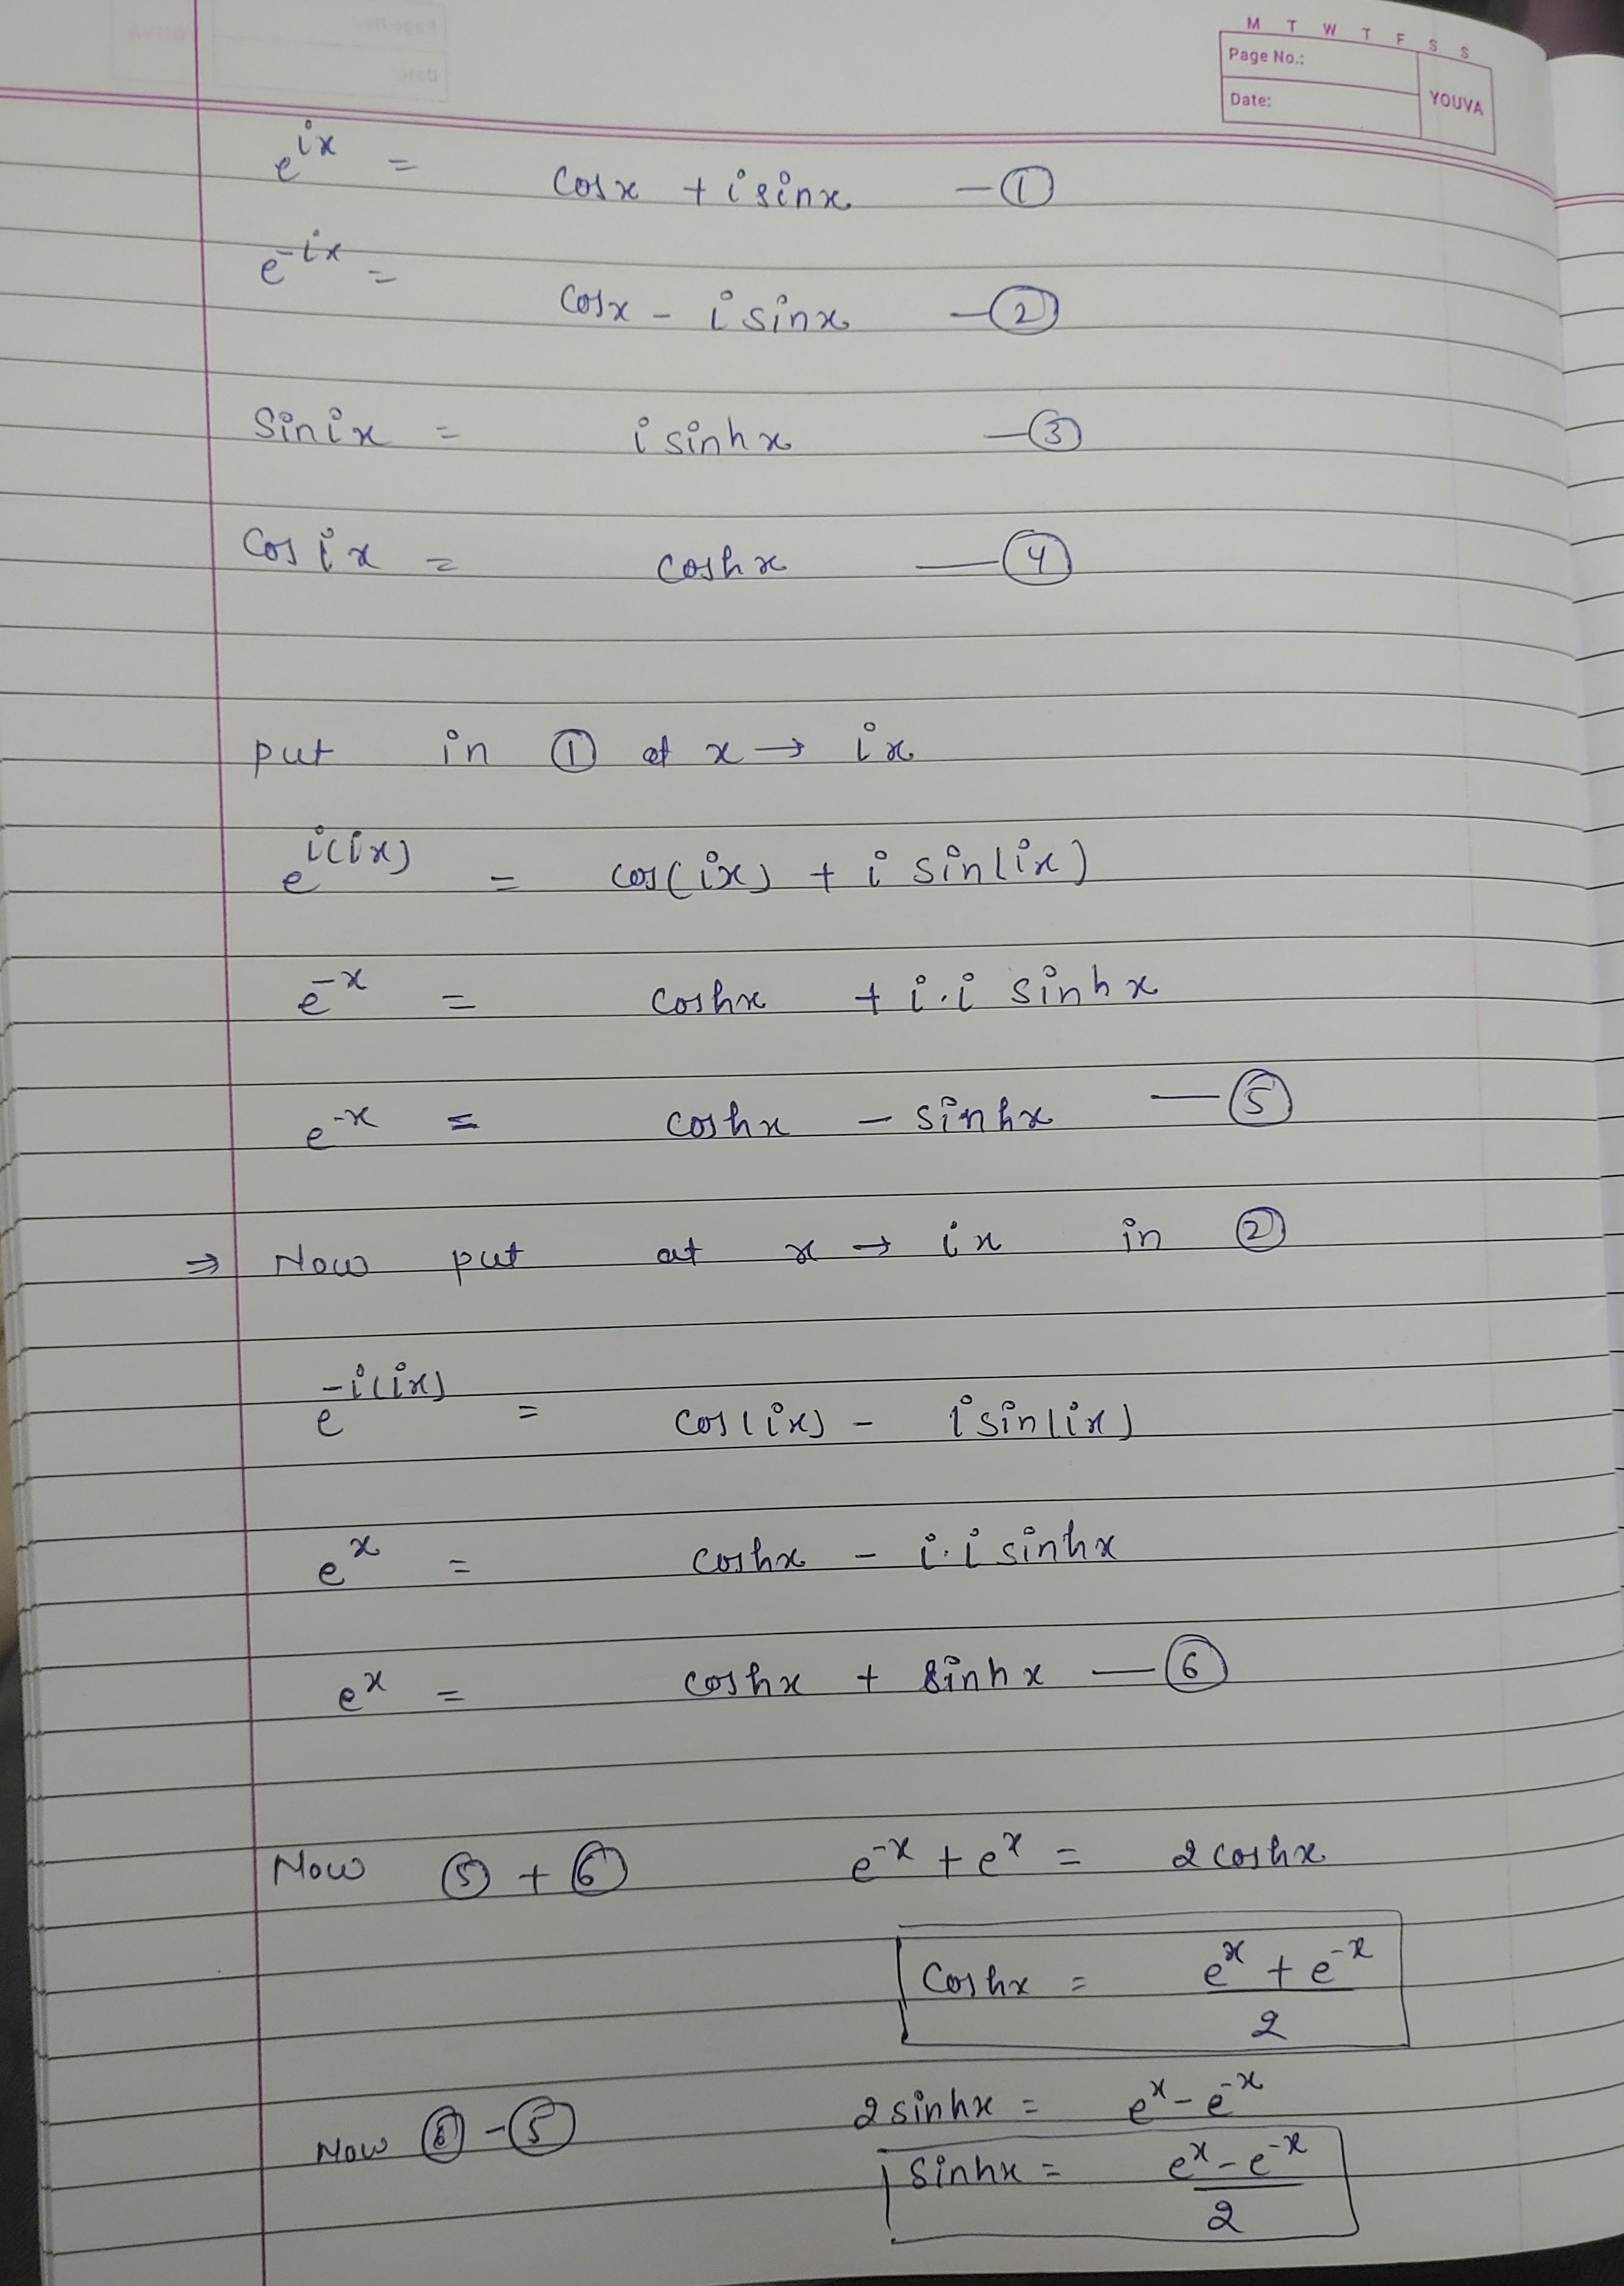 M T W T F S S
Page No.:
Date:
YOUVA
e^{ix} = cosx + i sinx — ①
e^{-ix} = cosx - i sinx — ②
Sin ix = i sinhx — ③
Cos ix = coshx — ④
put in ① at x → ix
e^{i(ix)} = cos(ix) + i sin(ix)
e^{-x} = coshx + i.i sinhx
e^{-x} = coshx - sinhx — ⑤
⇒ Now put at x → ix in ②
e^{-i(ix)} = cos(ix) - i sin(ix)
e^x = coshx - i.i sinhx
e^x = coshx + sinhx — ⑥
Now ⑤ + ⑥ e^{-x} + e^x = 2 coshx
Coshx = \frac{e^x + e^{-x}}{2}
Now ⑥ - ⑤ 2 sinhx = e^x - e^{-x}
Sinhx = \frac{e^x - e^{-x}}{2}